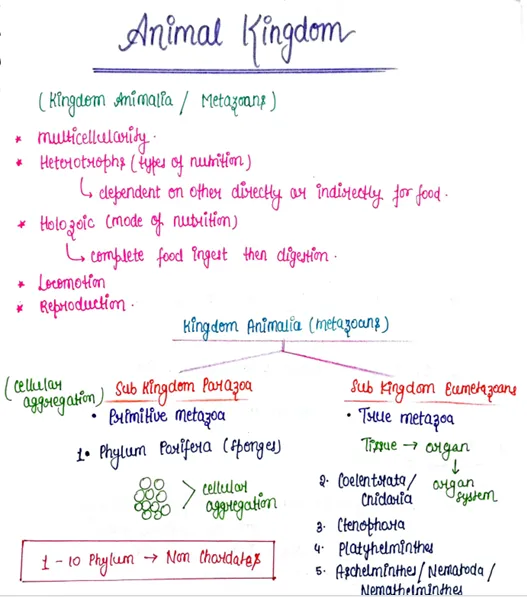 Animal Kingdom
(Kingdom Animalia / Metazoans)
* multicellularity.
* Heterotrophs (types of nutrition)
↳ dependent on other directly or indirectly for food.
* Holozoic (mode of nutrition)
↳ complete food ingest then digestion.
* Locomotion
* Reproduction.
Kingdom Animalia (metazoans)
(cellular aggregation)
Sub Kingdom Parazoa
• Primitive metazoa
1• Phylum Porifera (sponges)
> cellular
aggregation
1 - 10 Phylum → Non Chordates
Sub Kingdom Eumetazoans
• True metazoa
Tissue → organ
↓
organ
system
2• Coelentrata/
Cnidaria
3• Ctenophora
4• Platyhelminthes
5• Aschelminthes / Nematoda /
Nemathelminthes